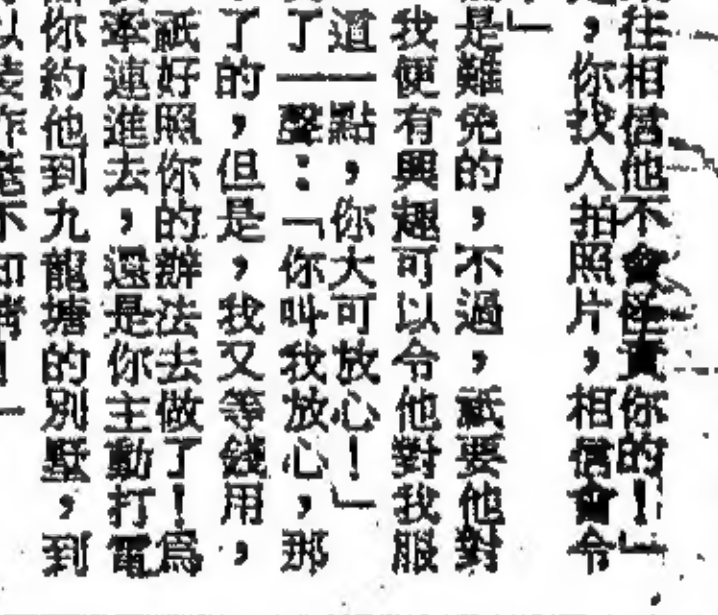 往相信他不會怪責你的！」
，你找人拍照片，相信會令
」
是難免的，不過，祇要他對
我便有興趣可以令他對我服
道一點，你大可放心！」
了一聲：「你叫我放心，那
了的，但是，我又等錢用，
祇好照你的辦法去做了！為
牽連進去，還是你主動打電
你約他到九龍塘的別墅，到
以裝作毫不知